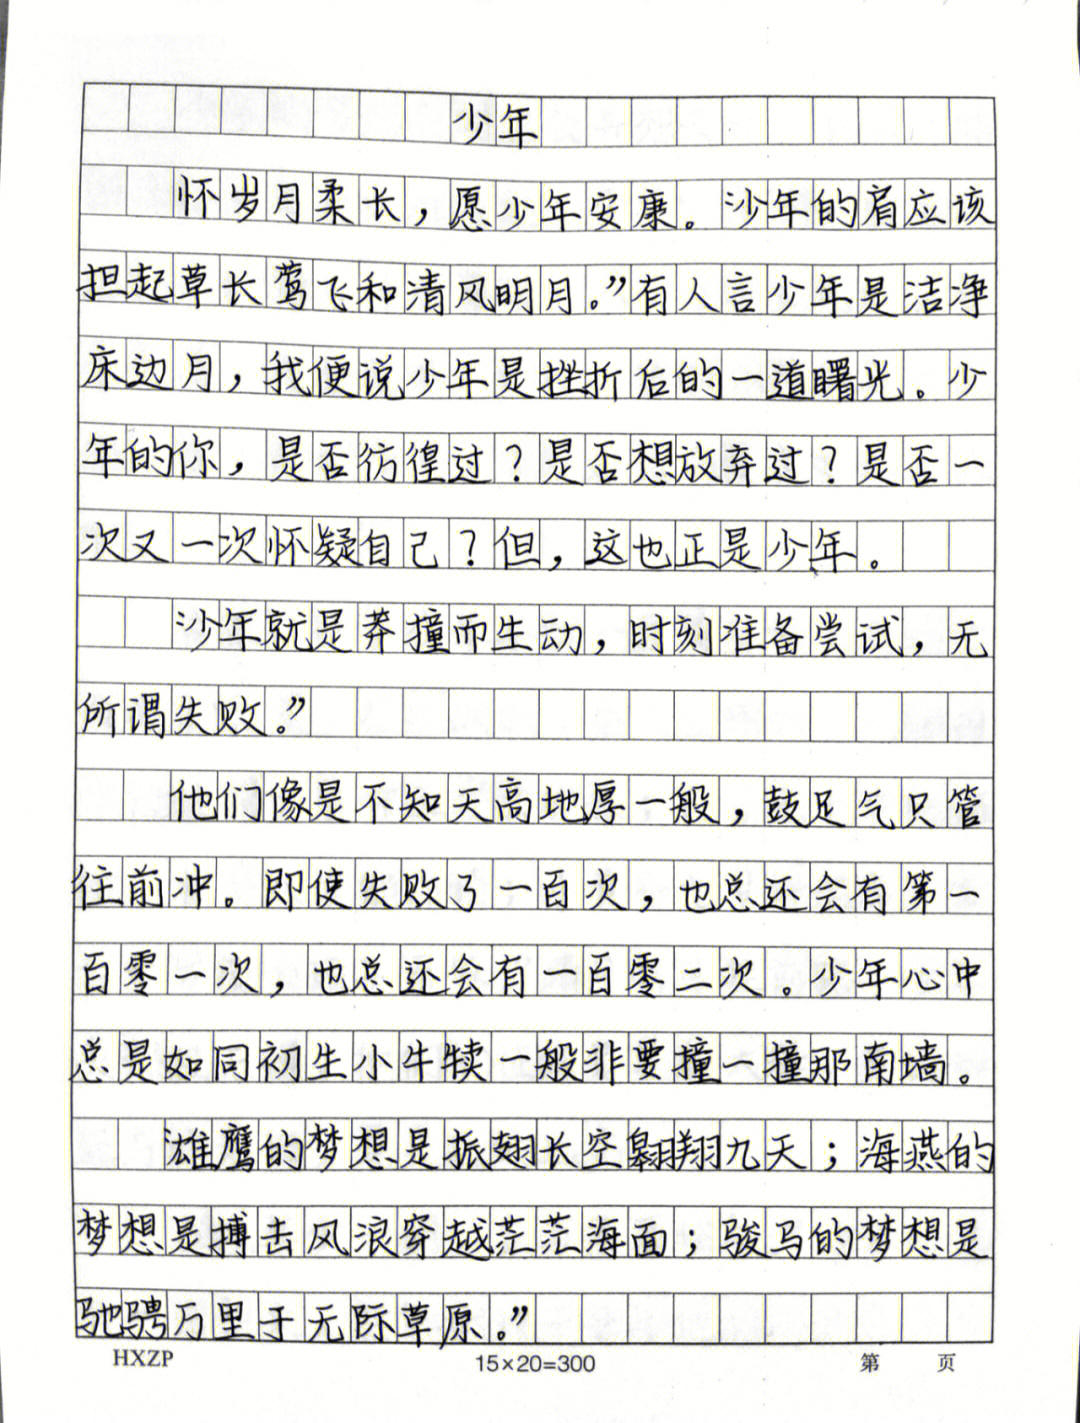 少年
怀岁月柔长，愿少年安康。“少年的肩应该
担起草长莺飞和清风明月。”有人言少年是洁净
床边月，我便说少年是挫折后的一道曙光。少
年的你，是否彷徨过？是否想放弃过？是否一
次又一次怀疑自己？但，这也正是少年。
“少年就是莽撞而生动，时刻准备尝试，无
所谓失败。”
他们像是不知天高地厚一般，鼓足气只管
往前冲。即使失败了一百次，也总还会有第一
百零一次，也总还会有一百零二次。少年心中
总是如同初生小牛犊一般非要撞一撞那南墙。
“雄鹰的梦想是振翅长空翱翔九天；海燕的
梦想是搏击风浪穿越茫茫海面；骏马的梦想是
驰骋万里于无际草原。”
HXZP 15×20=300 第 页